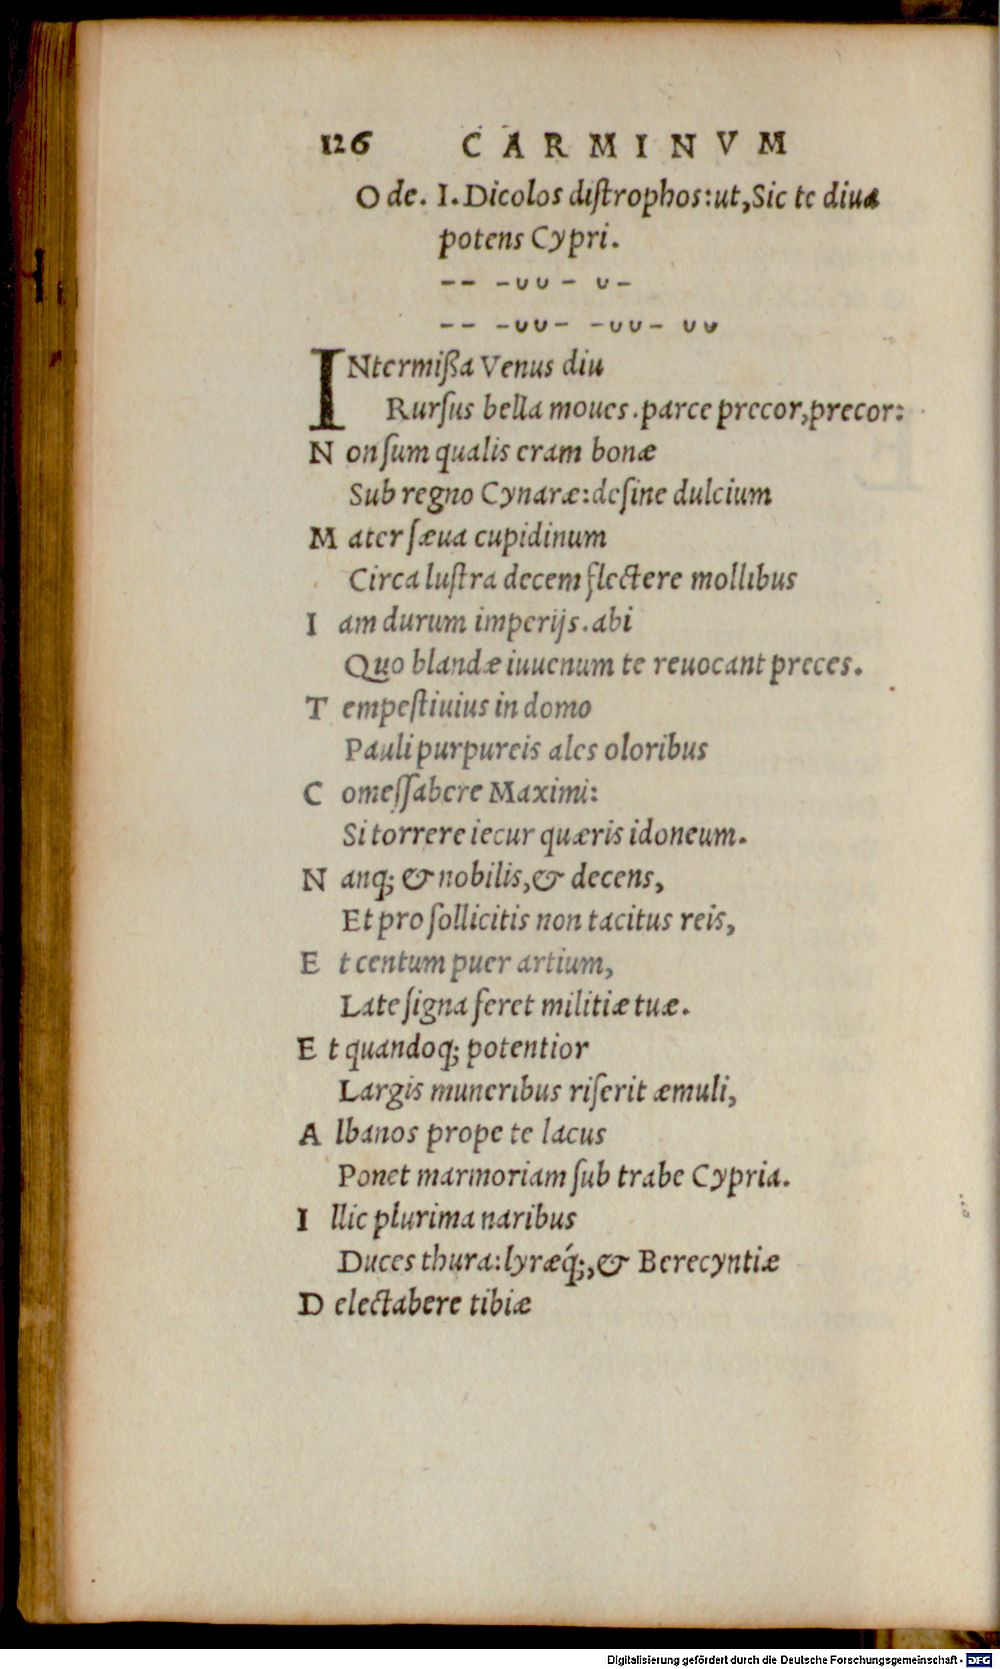 126 CARMINVM
Ode. I. Dicolos diſtrophos:ut, Sic te diua
potens Cypri.
-- -υυ- υ-
-- -υυ- -υυ- υυ
INtermiſſa Venus diu
Rurſus bella moues. parce precor, precor:
Non ſum qualis eram bonæ
Sub regno Cynaræ: deſine dulcium
Mater ſæua cupidinum
Circa luſtra decem flectere mollibus
Iam durum imperijs. abi
Quo blandæ iuuenum te reuocant preces.
Tempeſtiuius in domo
Pauli purpureis ales oloribus
Comeſſabere Maximi:
Si torrere iecur quæris idoneum.
Nanq; & nobilis, & decens,
Et pro ſollicitis non tacitus reis,
Et centum puer artium,
Late ſigna feret militiæ tuæ.
Et quandoq; potentior
Largis muneribus riſerit æmuli,
Albanos prope te lacus
Ponet marmoriam ſub trabe Cypria.
Illic plurima naribus
Duces thura: lyræq́;, & Berecyntiæ
Delectabere tibiæ
Digitalisierung gefördert durch die Deutsche Forschungsgemeinschaft - DFG